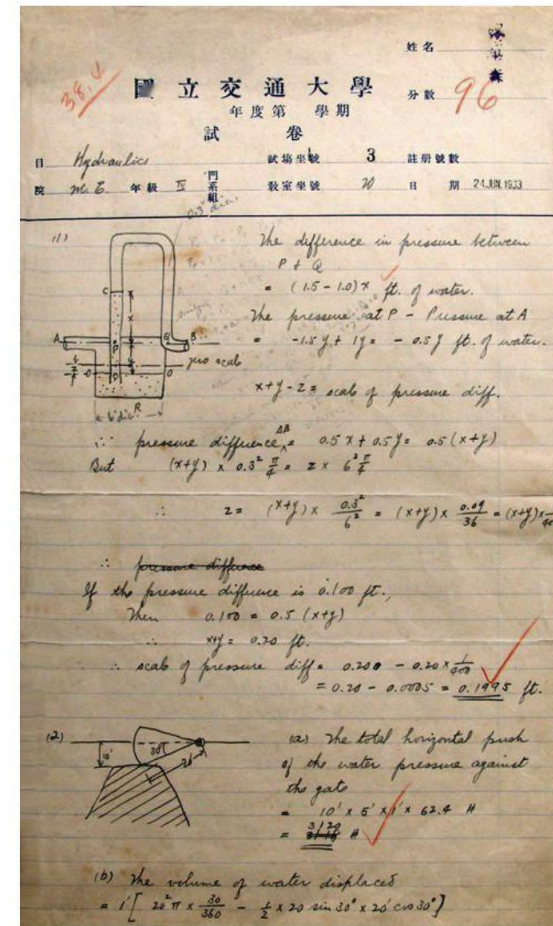 姓名
森
38.4
國立交通大學
分數 96
年度第 學期
試卷
目 Hydraulics 試場坐號 3 註册號數
院 M.E. 年級 IV 門系組 教室坐號 20 日期 24 JUN 1933
0.3" dia.
(1) The difference in pressure between
P & Q
C = (1.5 - 1.0) x ft. of water.
x
The pressure at P - Pressure at A
A P Q B = -1.5y + 1y = - 0.5y ft. of water.
y
zero scale
z O O x+y-z = scale of pressure diff.
R
6" dia.
∴ pressure difference AB = 0.5x + 0.5y = 0.5(x+y)
But (x+y) × 0.3² π/4 = z × 6² π/4
∴ z = (x+y) × 0.3²/6² = (x+y) × 0.09/36 = (x+y) ×
∴ pressure difference
If the pressure difference is 0.100 ft.,
Then 0.100 = 0.5 (x+y)
∴ x+y = 0.20 ft.
∴ scale of pressure diff = 0.200 - 0.20 × 1/400
= 0.20 - 0.0005 = 0.1995 ft.
(2) (a) The total horizontal push
10' 30° 20' of the water pressure against
the gate
= 10' × 5' × 1' × 62.4 #
= 3120 #
(b) The volume of water displaced
= 1' [ 20² π × 30/360 - 1/2 × 20 sin 30° × 20' cos 30° ]